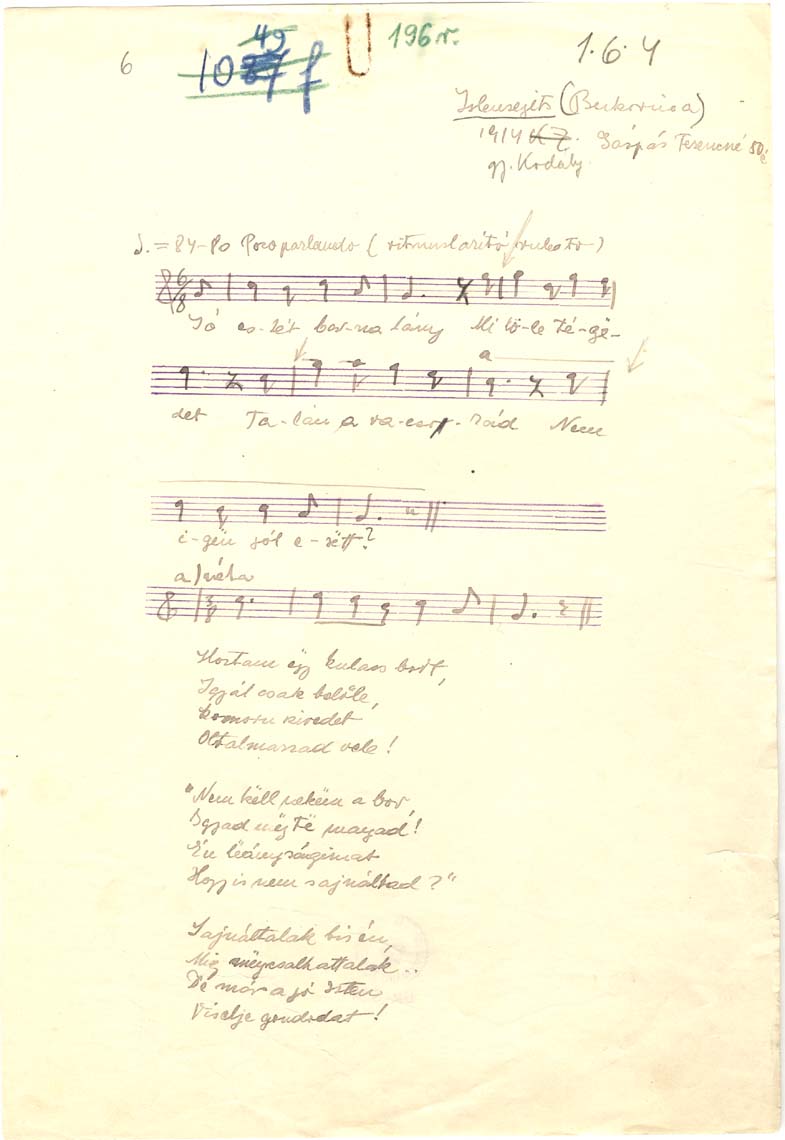 6
49
1037 f
196 r.
1.6.4
Istensegíts (Bukovina)
1914 KZ. Gáspás Ferencné 50é
gj. Kodály
= 84-80 Poco parlando (ritmuslazító rubato)
Jó es-tét bor-na lány Mi lö-le té-gë-
det Ta-lán a va-cso-rád Nem
a
i-gën jól e-sëtt?
a) néha
Hoztam ëgy kulacs bort,
Igyál csak belőle,
komoru szivedet
Oltalmazzad vele!
"Nem këll nekëm a bor,
Igyad mëg Të magad!
Én lëányságimat
Hogy is nem sajnáltad?"
Sajnáltalak bis én,
Mig mëgcsalhattalak..
Dë már a jó Isten
Viselje gondodat!